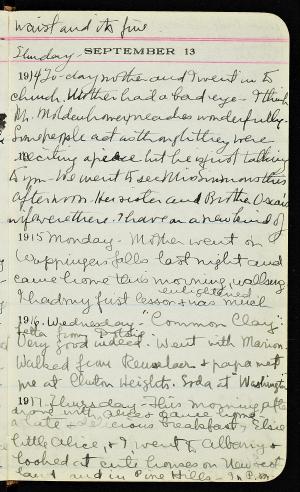 waist and its fine
Sunday -
SEPTEMBER 13
1914 To-day mother and I went in to
church. Mother had a bad eye - I think
Mr. Moldenhower preaches wonderfully.
Some people act as though they were
reciting a piece but he is just talking
to you - We went to see Miss Simmons this
afternoon. Her sister and Brother
wife were there. I have on a new kind of
1915 Monday - Mother went on
Wappingers falls last night and
came home this morning,
enlightened
I had my first lesson & was much
1916. Wednesday. "Common Clay"
letter from
Very good indeed. Went with Marion.
Walked from Rensselaer & papa met
me at Clinton Heights. Soda at Washington
1917. Thursday - This morning after
a late & delicious breakfast, Elsie
little Alice, & I went to Albany &
looked at cute houses on New Scot
land and in Pine Hills - In P.M.